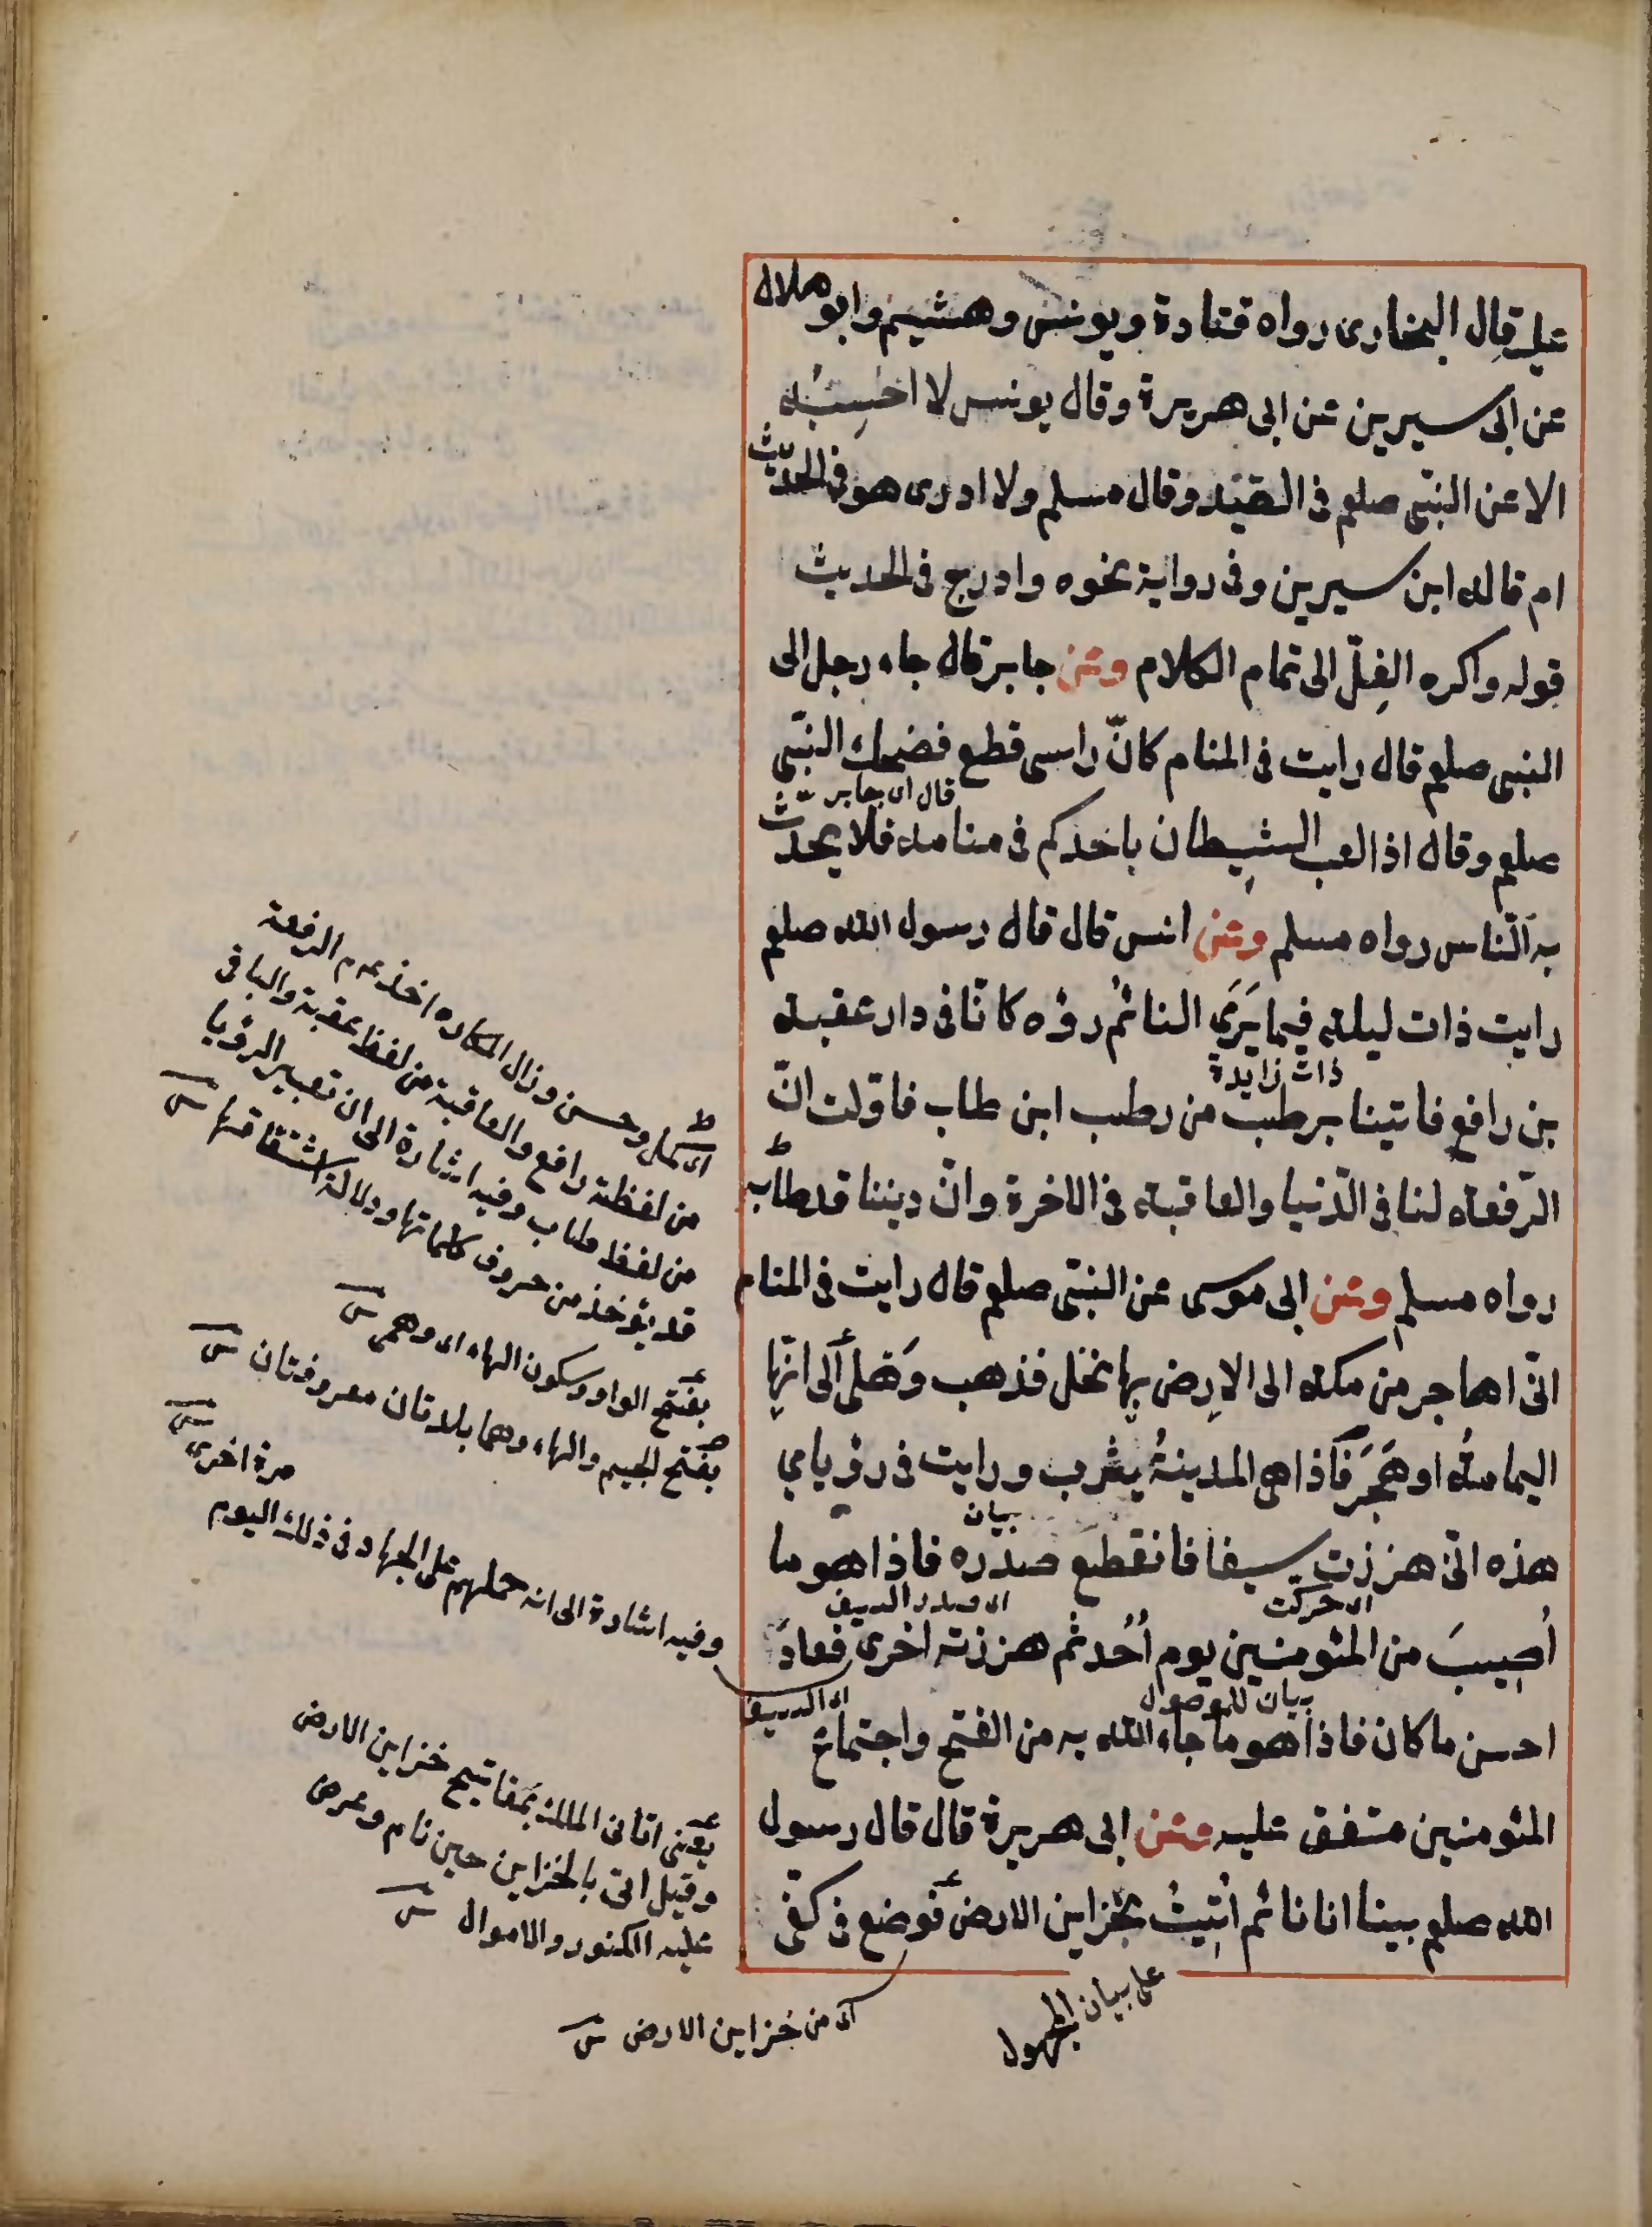 عليه قال البخارى رواه قتادة ويونس وهشيم وابو هلال
عن ابى سيرين عن ابى هريرة وقال يونس لا احسِبُه
الا عن النبّى صلعم فى القيد وقال مسلم ولا ادرى هو فى الحديث
ام قاله ابن سيرين وفى رواية نحوه وادرج فى الحديث
قوله واكره الغِلّ الى تمام الكلام وعن جابر قال جاء رجل الى
النبى صلعم قال رايت فى المنام كانّ راسى قطع فضحك النبّى
قال اى جابر
صلعم وقال اذا لعب الشيطان باحدكم فى منامه فلا يحدّث
به النّاس رواه مسلم وعن انس قال قال رسول الله صلعم
رايت ذات ليلة فيما يَرَى النائم رؤه كانّا فى دار عقبة
ذات زايدة
بن رافع فاتينا برطب من رطب ابن طاب فاوّلت انّ
الرّفعة لنا فى الدّنيا والعاقبة فى الاخرة وانّ ديننا قد طاب
رواه مسلم وعن ابى موسى عن النبّى صلعم قال رايت فى المنام
انّى اهاجر من مكة الى الارض بها نخل فذهب وَهْلى الى انّها
اليمامةُ او هَجَر فاذا هى المدينةُ يثرب ورايت فى رؤياي
بيان
هذه انّى هززت سيفا فانقطع صدره فاذا هو ما
اى حركت
اى صدر السيف
اُصِيبَ من المئومنين يوم اُحُد ثم هززته اخرى فعادَ
بيان للموصول
اى السيف
احسن ما كان فاذا هو ما جاء الله به من الفتح واجتماع
المئومنين متفق عليه وعن ابى هريرة قال قال رسول
الله صلعم بينا انا نائم اُتِيتُ بخزاين الارض فوضع فى كفّى
على بيان المجهول
اى من خزاين الارض
اى كمل وحسن وزال المكاره اخذ الرفعة
من لفظة رافع والعاقبة من لفظ عقبة والباقى
من لفظ طاب وفيه اشارة الى ان تعبير الرؤيا
قد يؤخذ من حروف كلماتها ودلالة اشتقاقها
بفتح الواو وسكون الهاء اى وهمى
بفتح الجيم والهاء وهما بلدتان معروفتان
مرة اخرى
وفيه اشارة الى انه حملهم على الجهاد فى ذلك اليوم
يعنى اتانى الملك بمفاتيح خزاين الارض
وقيل اتى بالخزاين حين نام وعرض
عليه الكنوز والاموال